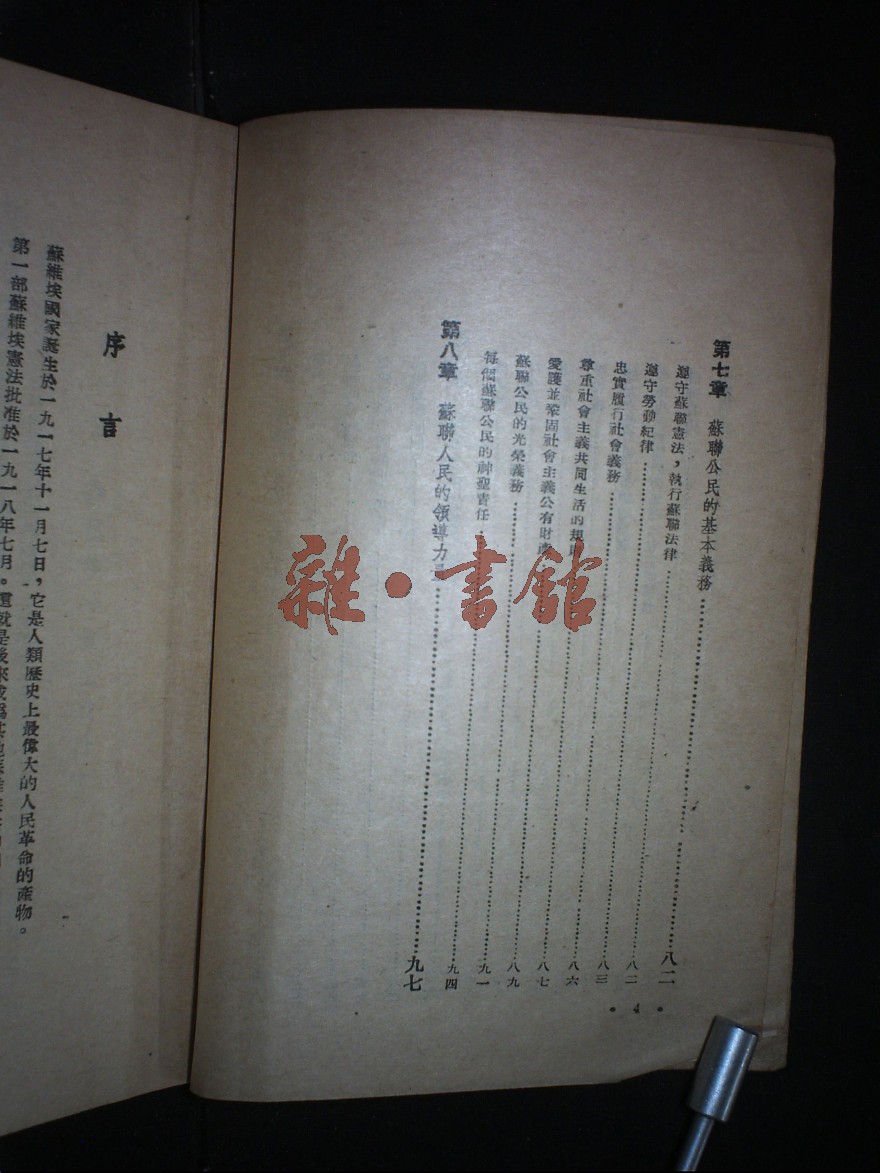 第七章 蘇聯公民的基本義務……八二
遵守蘇聯憲法，執行蘇聯法律……八二
遵守勞動紀律……八三
忠實履行社會義務……八六
尊重社會主義共同生活的規則……八七
愛護並鞏固社會主義公有財產……八九
蘇聯公民的光榮義務……九一
每個蘇聯公民的神聖責任……九四
第八章 蘇聯人民的領導力量……九七
• 4 •
雜·書館
序言
蘇維埃國家誕生於一九一七年十一月七日，它是人類歷史上最偉大的人民革命的產物。
第一部蘇維埃憲法批准於一九一八年七月。這就是後來成爲其他